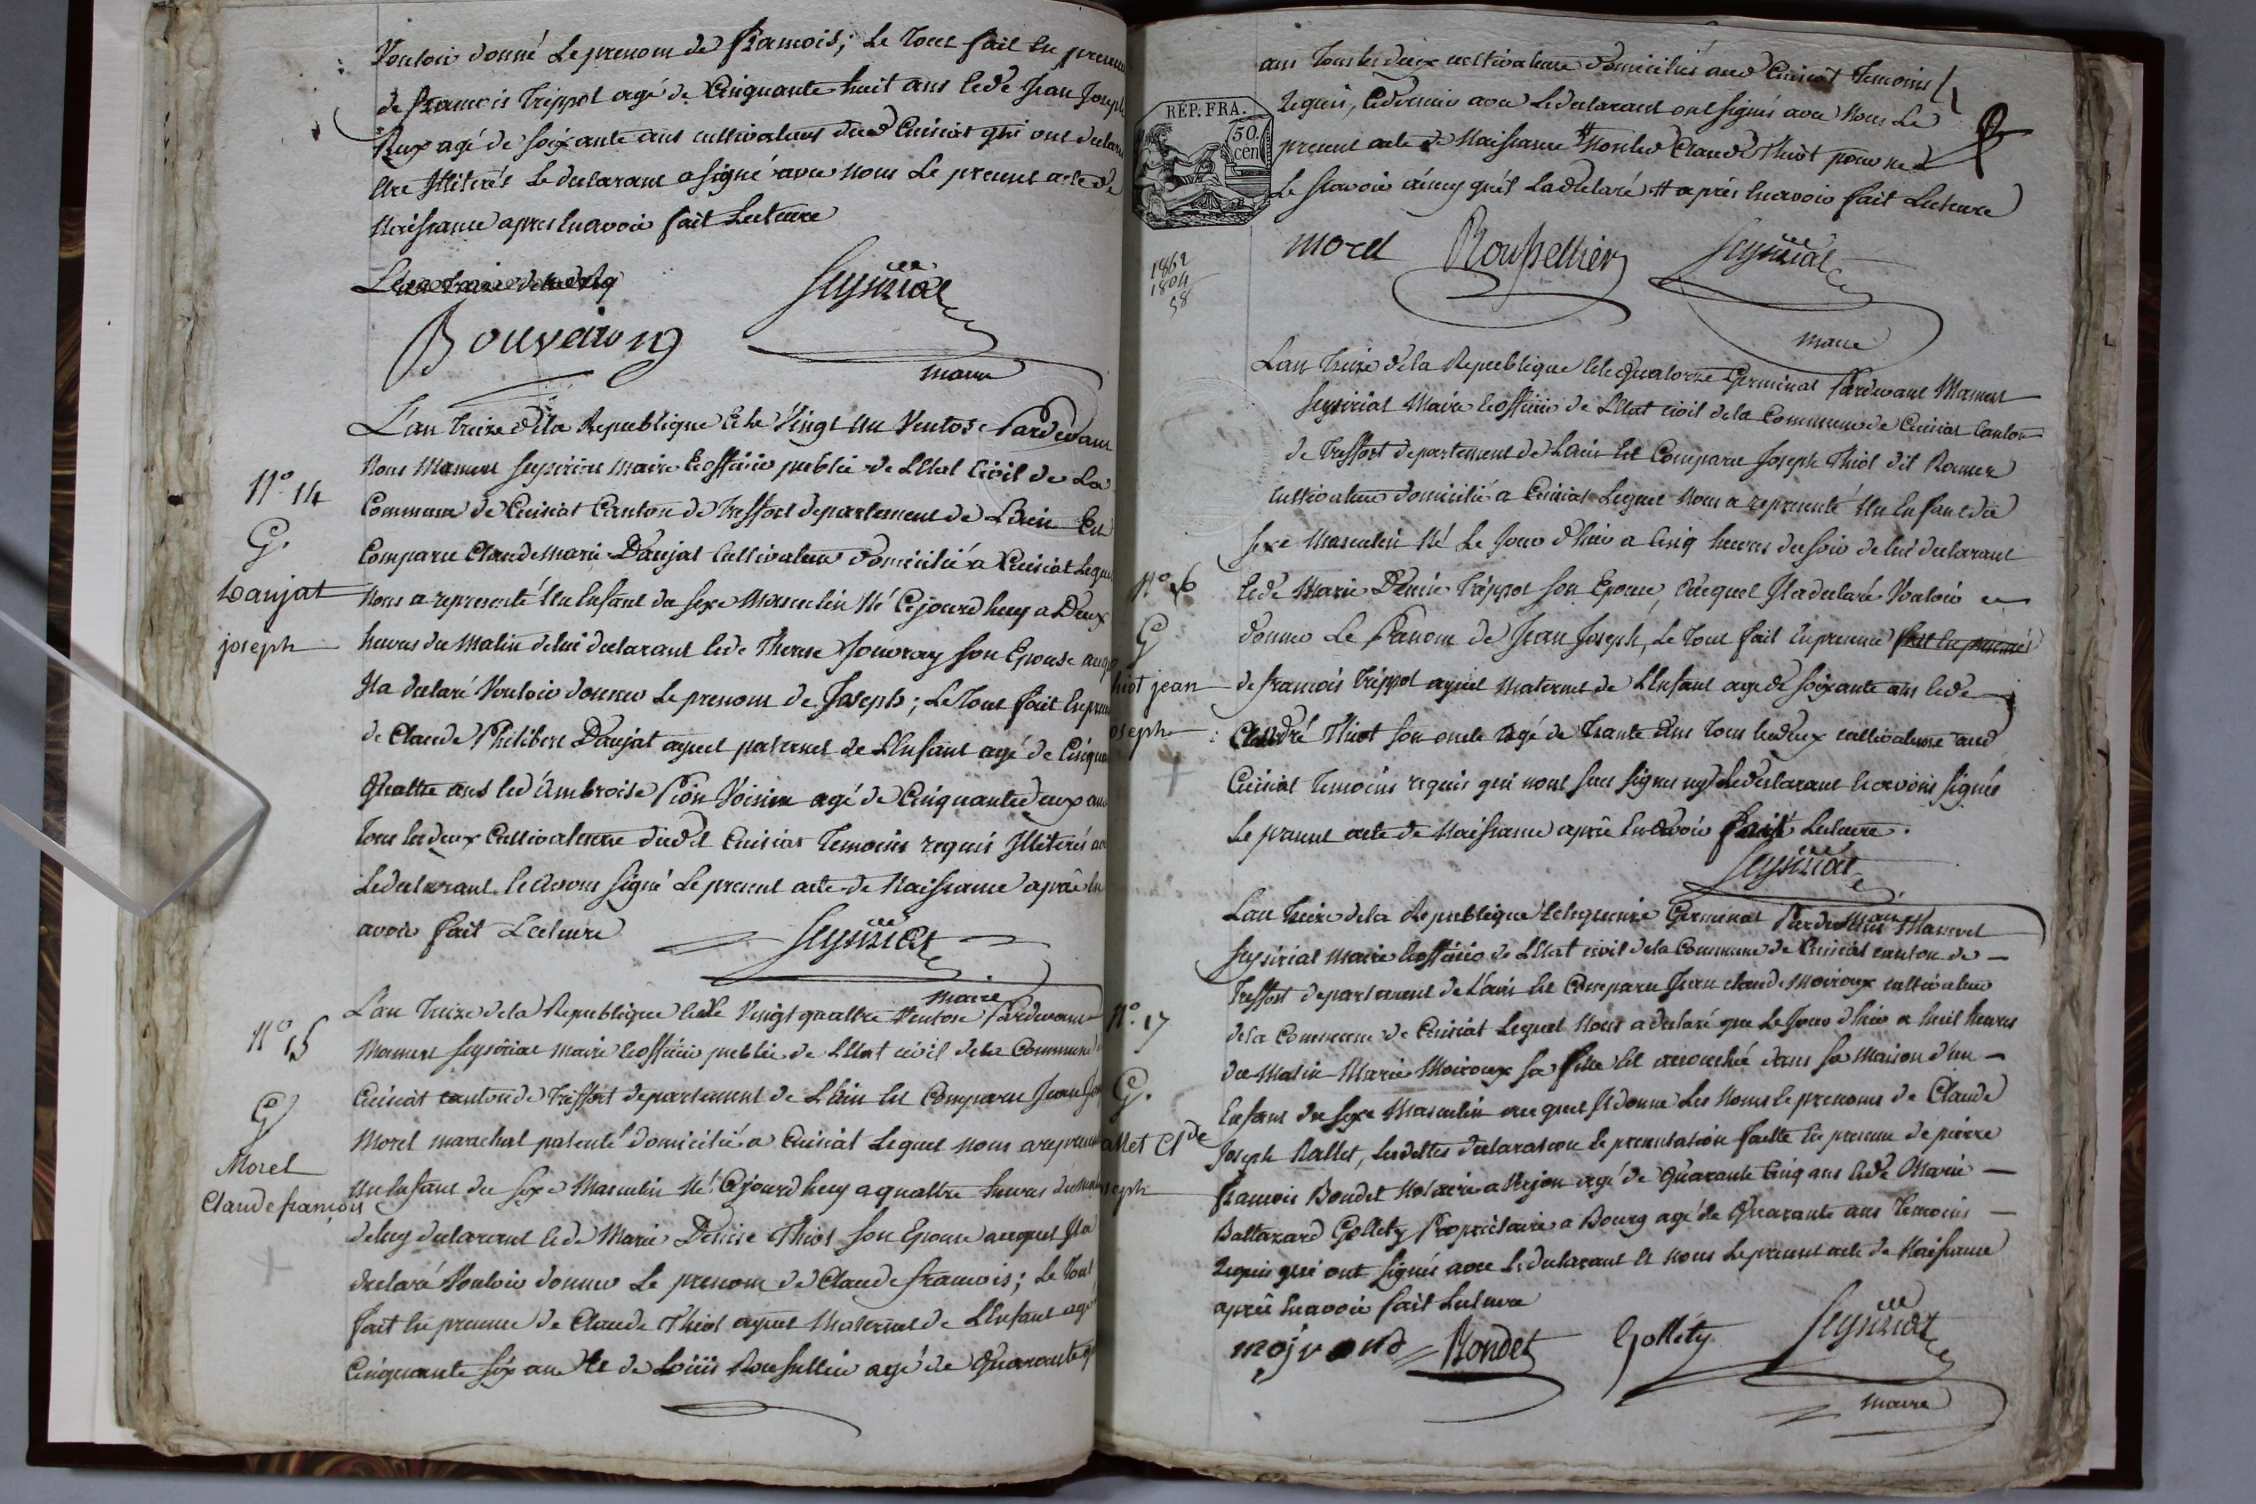 Vouloir donné Le prenom de francois; Le Tout fait En presence
de francois Treppoz agé de Cinquante huit ans Et de Jean Joseph
Rux agé de soixante ans cultivateurs dud Cuisiat qui ont declaré
Etre Illiterés Le declarant a signé avec nous Le present acte de
Naissance apres En avoir fait Lecture
Bouveiron
Seysiriat
maire
L'an treize de la Republique Et le Vingt un Ventose Pardevant
Nous Mamert Seysiriat maire Et officier public de L'Etat Civil de La
N° 14
Commune de Cuisiat Canton de Treffort departement de L'ain Est
G.
Comparu Claude marie Daujat Cultivateur domicilié a Cuisiat Lequel
Daujat
Nous a representé Un Enfant du sexe Masculin Né Cejourd'huy a Deux
joseph
heures du Matin de lui declarant Et de Therese Jouvray son Epouse auquel
Il a declaré Vouloir donner Le prenom de Joseph; Le Tout fait En presence
de Claude Philibert Daujat ayeul paternel de L'Enfant agé de Cinquante
Quattre ans Et d'Ambroise Pion Voisin agé de Cinquante deux ans
Tous les deux Cultivateurs dud't Cuisiat Temoins requis Illiterés
Le declarant Et avons signé Le present acte de Naissance après En
avoir fait Lecture
Seysiriat
maire
L'an treize de la Republique Et le Vingt quattre Ventose Pardevant
N° 15
Mamert Seysiriat maire Et officier public de L'Etat civil de la Commune
Cuisiat canton de Treffort departement de L'Ain Est Comparu Jean
G
Morel marechal patenté domicilié a Cuisiat Lequel nous a representé
Morel
Un Enfant du sexe Masculin Né Cejourd'huy a quattre heures du matin
Claude françois
de luy declarant Et de Marie Denise Thiot son Epouse auquel Il a
declaré Vouloir donner Le prenom de Claude francois; Le Tout
fait En presence de Claude Thiot ayeul Maternel de L'Enfant agé
Cinquante six ans Et de Louis Roussellier agé de Quarante
ans Tous les deux cultivateurs domiciliés aud Cuisiat Temoins
requis, Ce dernier avec Le declarant ont signés avec Nous Le
RÉP. FRA.
50. cen
present acte de Naissance Non led Claude Thiot pour ne
Le scavoir ainsy qu'il L'a declaré après En avoir fait Lecture
1862
1804
58
morel Roussellier Seysiriat
maire
L'an treize de la Republique Et le Quatorze Germinal Pardevant Mamert
Seysiriat Maire Et officier de L'Etat civil de la Commune de Cuisiat Canton
de Treffort departement de L'ain Est Comparu Joseph Thiot dit Romer
cultivateur domicilié a Cuisiat Lequel Nous a representé Un Enfant du
sexe Masculin Né Le Jour d'hier a Cinq heures du soir de lui declarant
N° 16
Et de Marie Denise Treppoz son Epouse, Auquel Il a declaré Vouloir
G
donner Le Prenom de Jean Joseph, Le Tout fait En presence fait En presence
hiot jean
de francois Treppoz ayeul Maternel de L'Enfant agé de soixante ans Et de
oseph
André Thiot son oncle agé de Trante Ans Tous les deux cultivateurs aud
Cuisiat Temoins requis qui n'ont sus signer ny Le declarant Et avons signés
Le present acte de Naissance après En avoir fait Lecture.
Seysiriat
maire
L'an treize de la Republique Et le quinze Germinal Pardevant Mamert
Seysiriat Maire Et officier de L'Etat civil de la Commune de Cuisiat canton de
Treffort departement de L'ain Est Comparu Jean claude Moiroux cultivateur
N°. 17
de la Commune de Cuisiat Lequel Nous a declaré que Le Jour d'hier a huit heures
du Matin Marie Moiroux sa fille Est accouchée dans sa Maison d'un
G.
Enfant du sexe Masculin auquel Il donne Les Noms Et prenoms de Claude
allet Cl de
Joseph Rallet, Lesdittes declaration Et presentation faitte En presence de pierre
seph
francois Bondet Notaire a agé de Quarante Cinq ans Et de Marie
Baltazard Gollety Propriétaire a Bourg agé de Quarante ans Temoins
Requis qui ont signés avec Le declarant Et nous Le present acte de Naissance
après En avoir fait Lecture
Bondet Gollety Seysiriat
maire